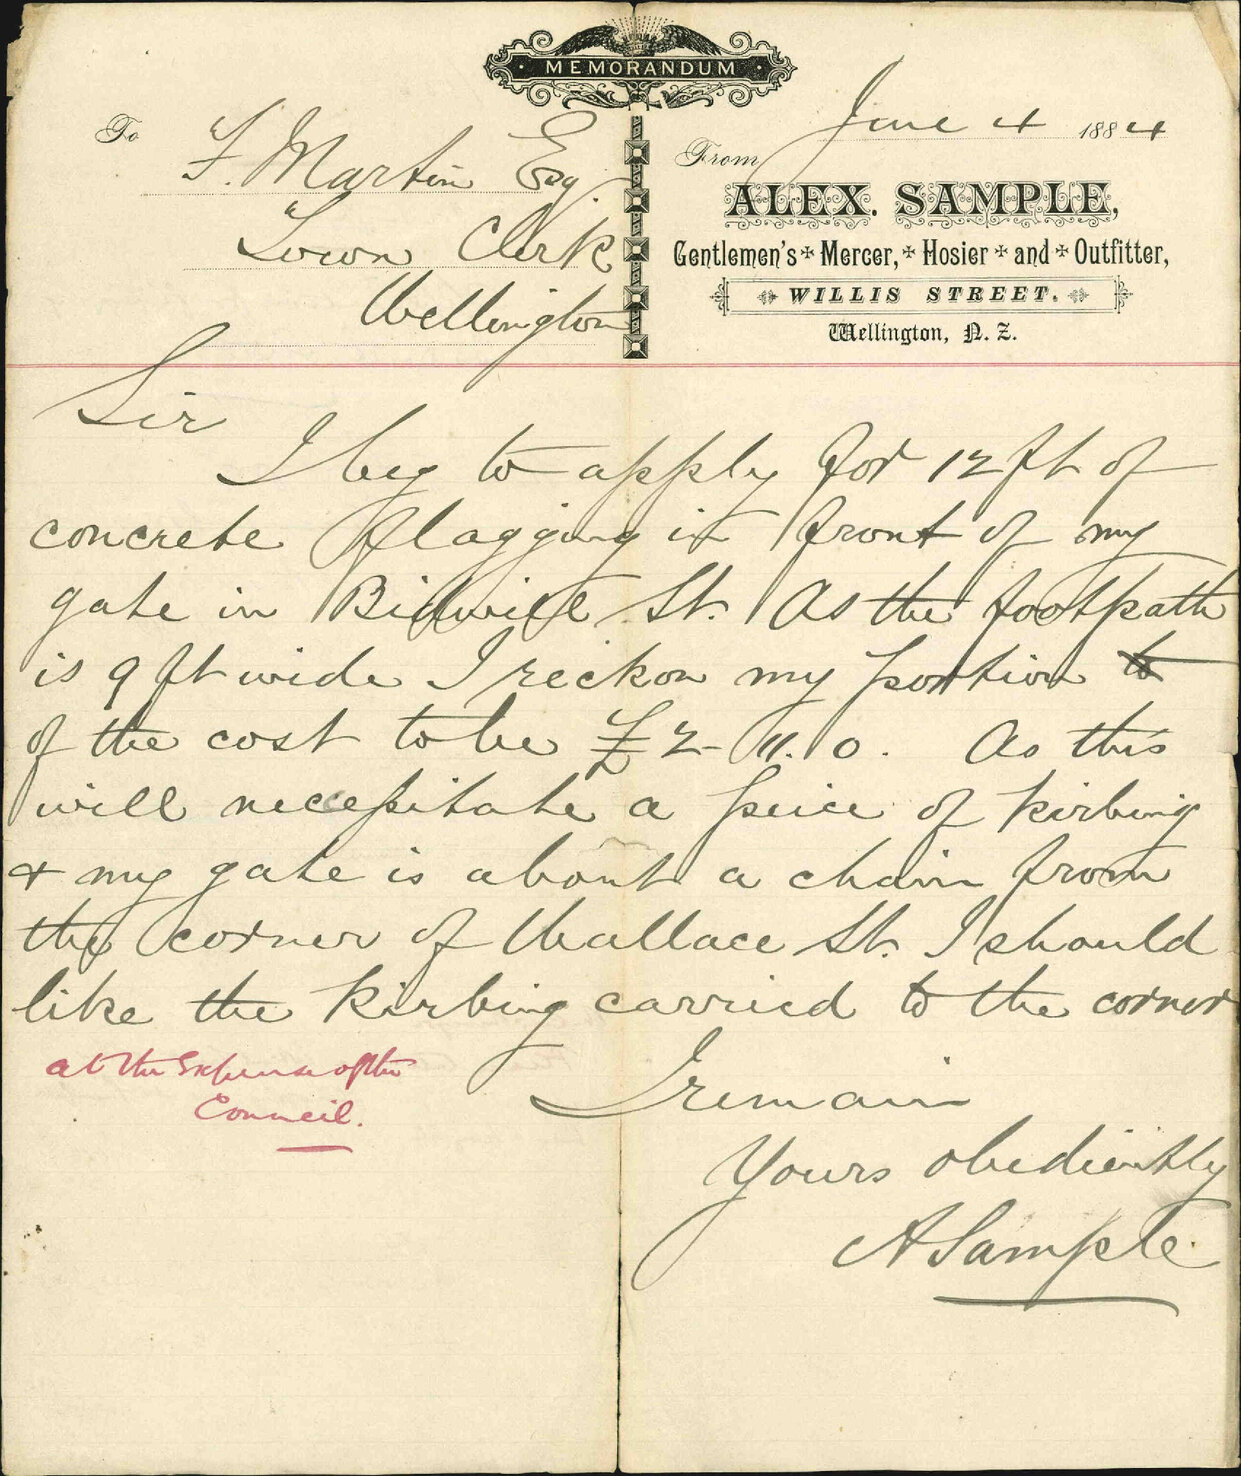 MEMORANDUM
June 4 1884
To F. Martin Esq.
Town Clerk
Wellington
From
ALEX. SAMPLE,
Gentlemen's Mercer, Hosier and Outfitter,
WILLIS STREET.
Wellington, N. Z.
Sir
I beg to apply for 12 ft of
concrete flagging in front of my
gate in Bidwill St. As the footpath
is 9 ft wide I reckon my portion to
of the cost to be £2-11.0. As this
will necessitate a peice of kirbing
& my gate is about a chain from
the corner of Wallace St. I should
like the kirbing carried to the corner
at the Expense of the
Council.
I remain
Yours obediently
A Sample